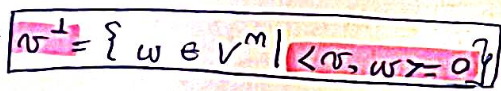 v⊥ = { w ∈ Vⁿ | <v, w> = 0}